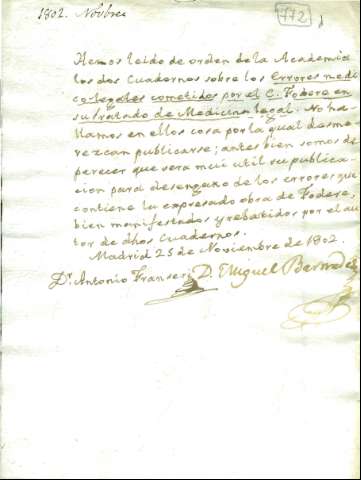 1802. Novbre
772
Hemos leido de orden de la Academia
los dos Cuadernos sobre los Errores medi
co legales cometidos por el C. Fodere en
su tratado de Medicina legal. No ha
llamos en ellos cosa por la qual desme-
rezcan publicarse; antes bien somos de
parecer que sera mui util su publica-
cion para desengaño de los errores que
contiene la expresada obra de Fodere,
bien manifestados y rebatidos por el au
tor de dhos Cuadernos.
Madrid 25 de Noviembre de 1802.
Dr. Antonio Franseri D. Miguel Barnades